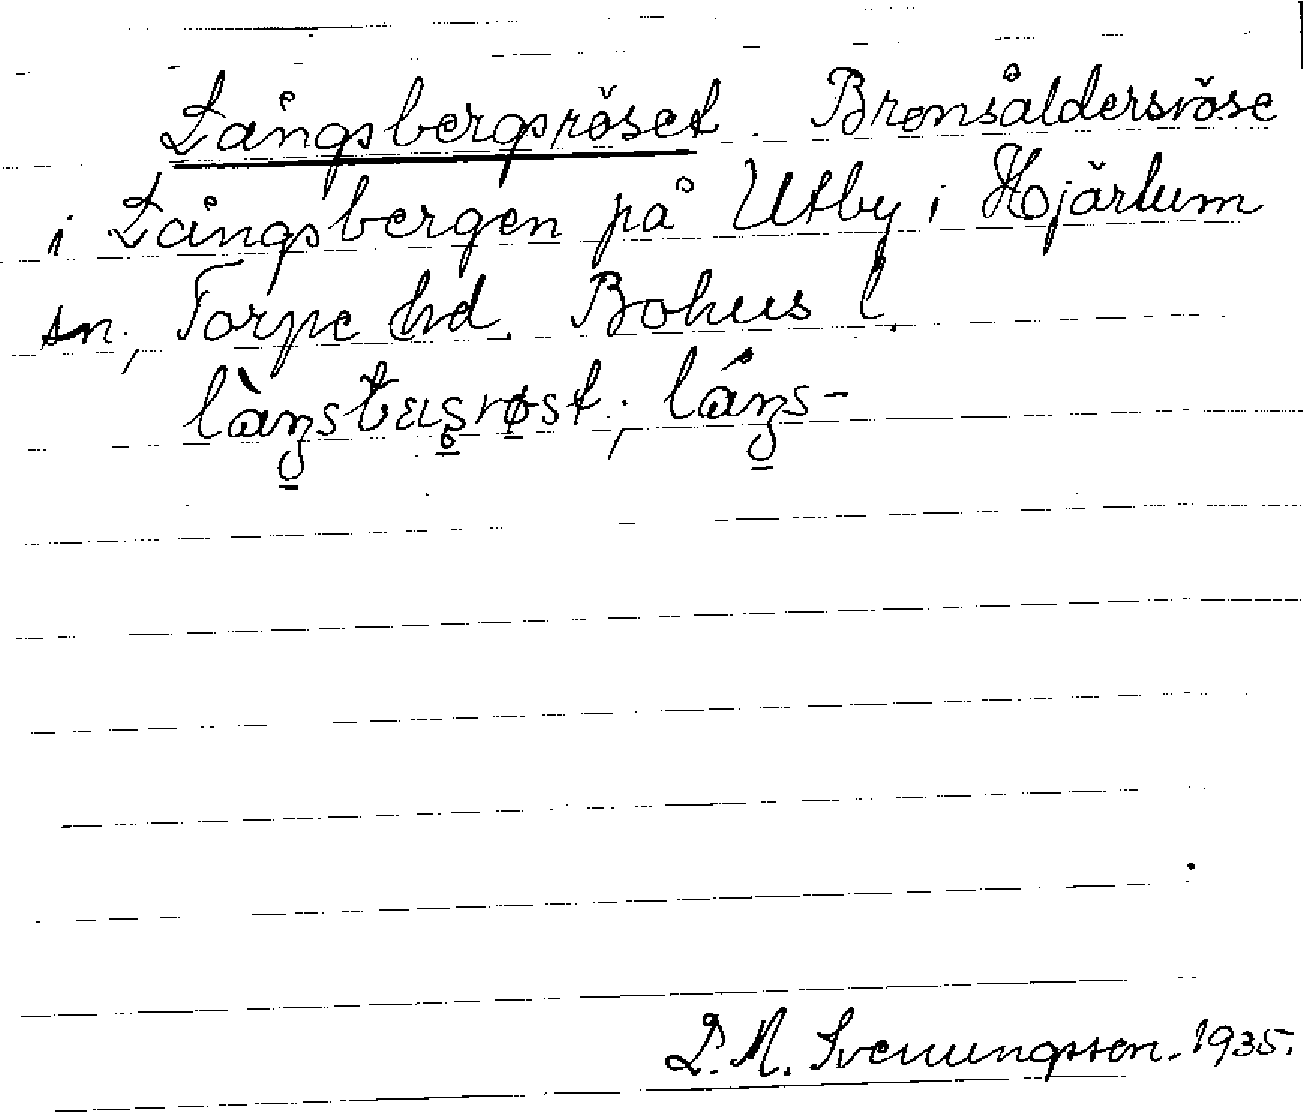 Långsbergsröset. Bronsåldersröse
i Långsbergen på Utby i Hjärtum
sn, Torpe hd. Bohus l.
S. M. Svenungsson. 1935.